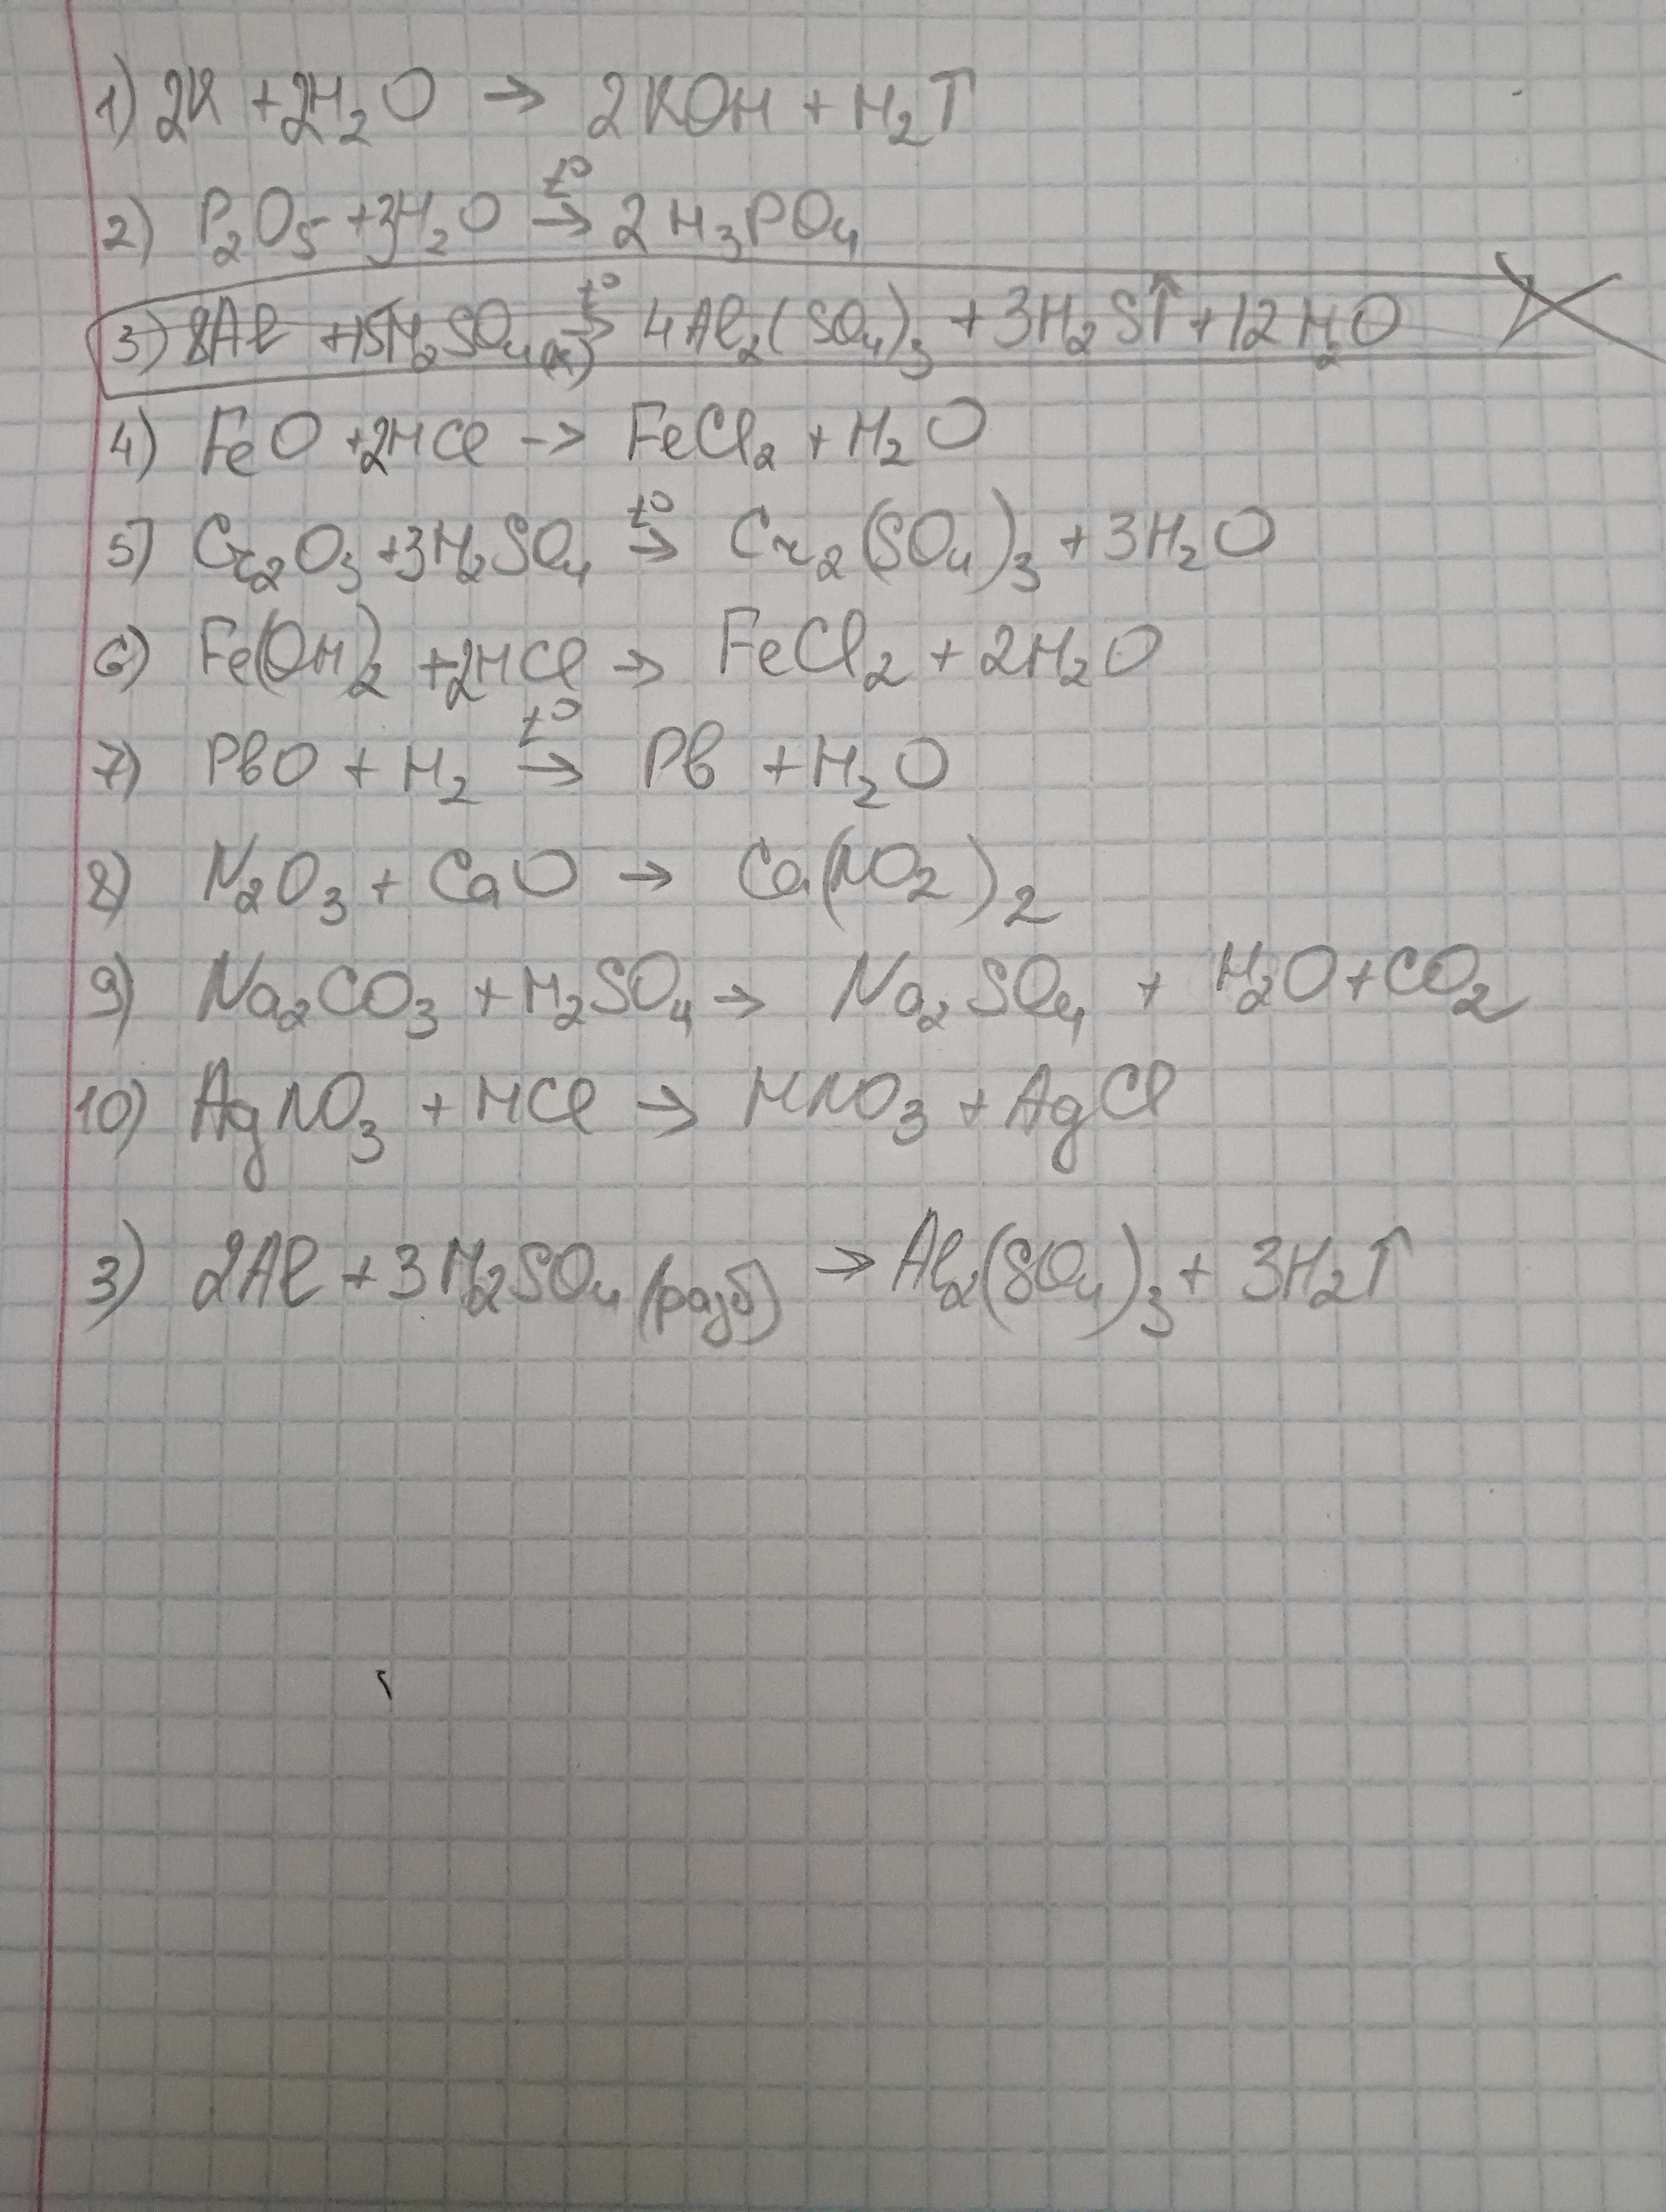 1) 2K + 2H₂O → 2KOH + H₂↑
2) P₂O₅ + 3H₂O t° → 2H₃PO₄
3) 8Al + 15H₂SO₄(к) t° → 4Al₂(SO₄)₃ + 3H₂S↑ + 12H₂O
4) FeO + 2HCl → FeCl₂ + H₂O
5) Cr₂O₃ + 3H₂SO₄ t° → Cr₂(SO₄)₃ + 3H₂O
6) Fe(OH)₂ + 2HCl → FeCl₂ + 2H₂O
7) PbO + H₂ t° → Pb + H₂O
8) N₂O₃ + CaO → Ca(NO₂)₂
9) Na₂CO₃ + H₂SO₄ → Na₂SO₄ + H₂O + CO₂
10) AgNO₃ + HCl → HNO₃ + AgCl
3) 2Al + 3H₂SO₄(разб) → Al₂(SO₄)₃ + 3H₂↑